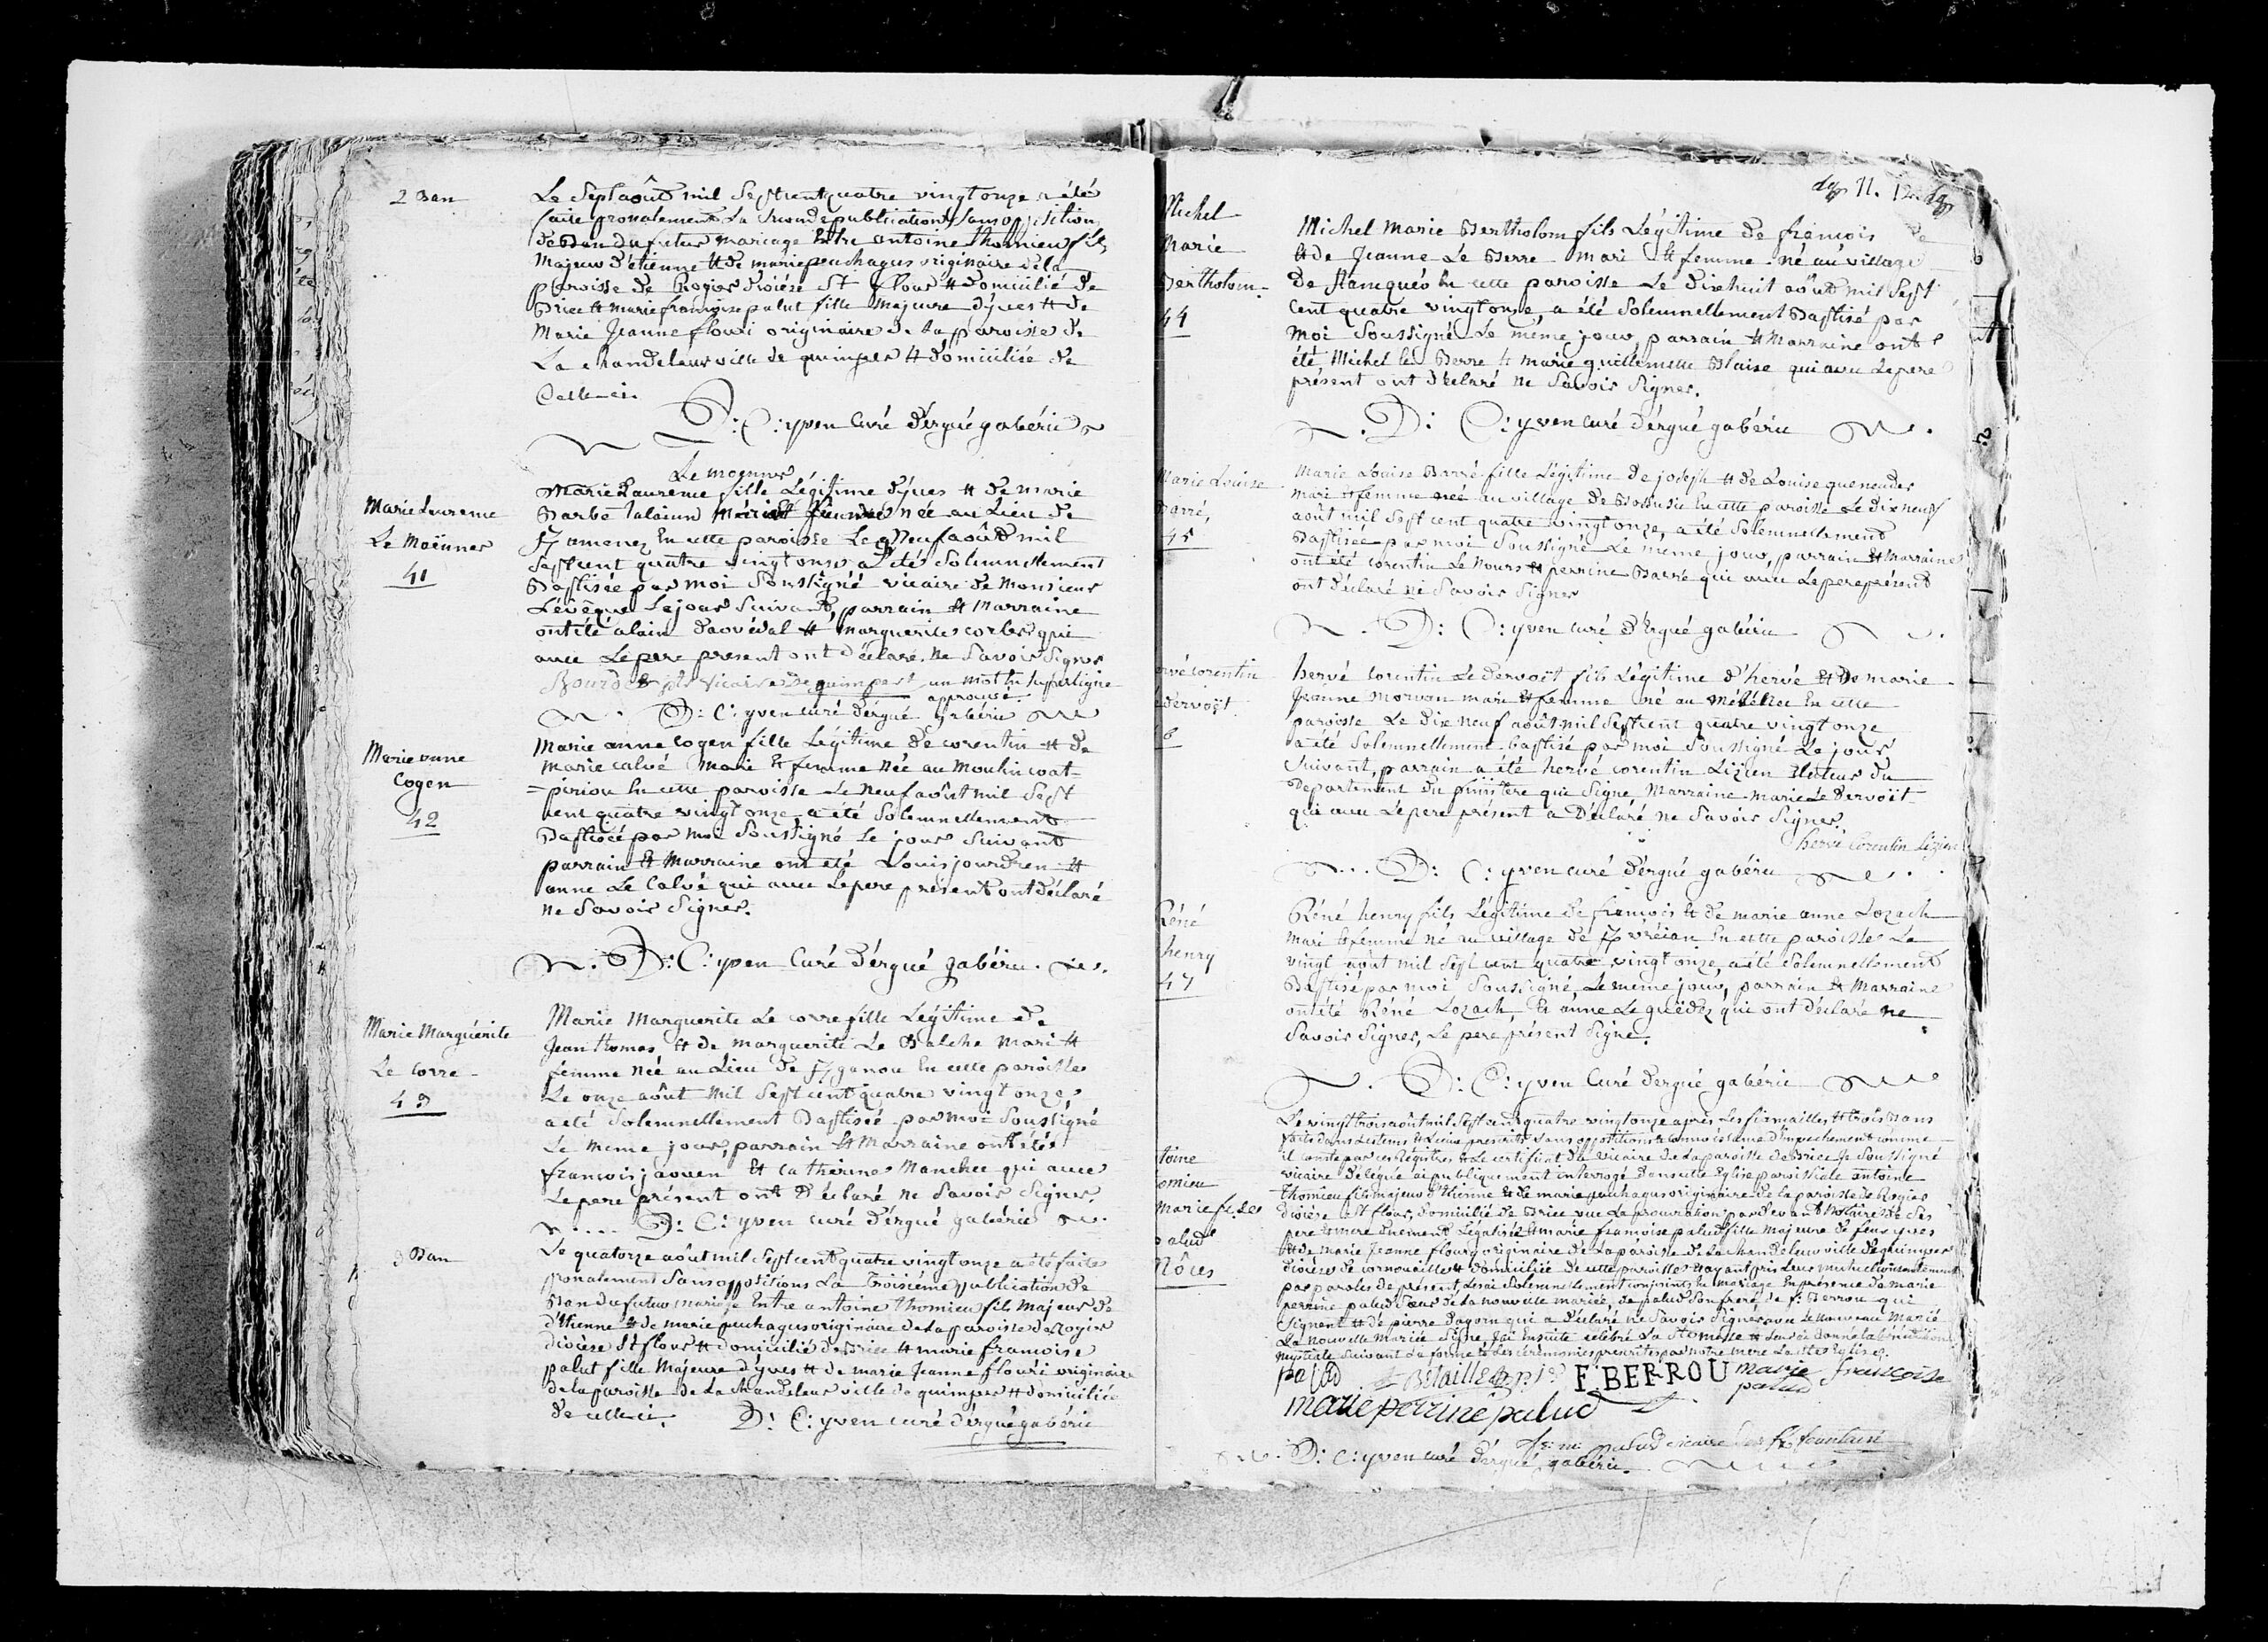 2 Ban
Le Sept août mil Sept cent quatre vingt onze a été
faite pronalement la Seconde publication Sans opposition
de Ban du futur mariage Entre antoine thomieu fils
Majeur d'étienne et de marie peuchagus originaire de la
paroisse de Rogier diocèse St flour et domicilié de
Briec et marie françoise palut fille majeure d'yves et de
Marie Jeanne flouri originaire de la paroisse de
La chandeleur ville de quimper et domiciliée de
Celle-ci.
D: C: yven Curé d'érgué gabéric
Marie Laurence
Le Moënner
41
Le moenner
Marie Laurence fille Légitime d'yves et de marie
Barbe Lalaiun Mari et femme née au Lieu de
amenez En cette paroisse Le Neuf août mil
Sept cent quatre vingt onze a été Solemnellement
Baptisée par moi Soussigné vicaire de Monsieur
L'évêque Le jour Suivant, parrain et Marraine
ont été alain Daovédal et marguerite corler qui
avec Le pere present ont déclaré Ne Savoir Signer
vicaire de quimper un mot En Superligne
approuvé
D: C: yven curé d'érgué gabéric
Marie anne
Cogen
42
Marie anne Cogen fille Légitime de corentin et de
marie calvé Mari et femme Née au Moulin coat=
=piriou En cette paroisse Le Neuf août mil Sept
cent quatre vingt onze, a été Solemnellement
Baptisée par moi Soussigné Le jour Suivant
parrain et Marraine ont été Louis jourdren et
anne Le Calvé qui avec Le pere présent ont déclaré
ne Savoir Signer.
D: C: yven Curé d'érgué gabéric.
Marie Marguérite
Le Corre
43
Marie Marguerite Le corre fille Légitime de
Jean thomas et de marguerite Le Balche Mari et
femme Née au Lieu de ganou En cette paroisse
Le onze août Mil Sept cent quatre vingt onze,
a été Solemnellement Baptisée par moi Soussigné
Le meme jour, parrain et Marraine ont été
francois jaouen et Catherine Manchec qui avec
Le pere présent ont Déclaré ne Savoir Signer.
D: C: yven curé d'érgué gabéric
3 Ban
Le quatorze août mil Sept cent quatre vingt onze a été faite
pronalement Sans oppositions La Troisième publication de
Ban du futur mariage Entre antoine thomieu fils Majeur de
d'étienne et de marie peuchagus originaire de La paroisse de Rogier
diocèse St flour et domicilié de Briec et marie francoise
palut fille Majeure d'yves et de marie Jeanne flouri originaire
de la paroisse de La chandeleur ville de quimper et domiciliée
de celle-ci.
D: C: yven curé d'érgué gabéric
11. 12
Michel
Marie
Bertholom
44
Michel Marie Bertholom fils Légitime de francois
et de Jeanne Le Berre Mari et femme né au village
de Stanquéo En cette paroisse Le Dix huit août Mil Sept
Cent quatre vingt onze, a été Solemnellement Baptisé par
Moi Soussigné Le même jour, parrain et Marraine ont
été Michel Le Berre et Marie guillemette Blaise qui avec Le pere
présent ont déclaré Ne Savoir Signer.
D: C: yven curé d'érgué gabéric
Marie Louise
Barré,
45
Marie Louise Barré fille Légitime de joseph et de Louise queneuder
Mari et femme née au village de En cette paroisse Le dix neuf
août mil Sept cent quatre vingt onze, a été Solemnellement
Baptisée par moi Soussigné Le meme jour, parrain et Marraine
ont été corentin Le Nours et perrine Barré qui avec Le pere présent
ont déclaré ne Savoir Signer
D: C: yven curé d'érgué gabéric
ervé corentin
e dervoët
6
hervé corentin Le Dervoët fils Légitime d'hervé et de marie
Jeanne Morvan mari et femme né au Mélénec En cette
paroisse Le Dix neuf août mil Sept cent quatre vingt onze
a été Solemnellement baptisé par moi Soussigné Le jour
Suivant, parrain a été hervé corentin Lizien Electeur du
Département du finistère qui Signe, Marraine Marie Le Dervoët
qui avec Le pere présent a Déclaré ne Savoir Signer.
hervé Corentin Lizien
D: C: yven curé d'érgué gabéric
Réné
henry
47
Réné henry fils Légitime de françois et de marie anne Lozach
Mari et femme né au village de vréian En cette paroisse Le
vingt août mil Sept cent quatre vingt onze, a été Solemnellement
Baptisé par moi Soussigné, Le meme jour, parrain et Marraine
ont été Réné Lozach, Et anne Le guédez qui ont déclaré ne
Savoir Signer, Le pere présent Signe.
D: C: yven Curé d'érgué gabéric
toine
omieu
marie fse
palud
Nôces
Le vingt trois août mil Sept cent quatre vingt onze après Les fiançailles et trois Bans
faits dans Les tems et Lieux prescrits Sans opposition ni connoissance d'Empechement comme
il conste par ces Régistres et Le certificat du vicaire de La paroisse de Briec Je Soussigné
vicaire délégué ai publiquement interrogé dans cette Eglise paroissiale antoine
thomieu fils majeur d'étienne et de marie peuchagus originaire de la paroisse de Rogier
diocèse St flour, domicilié de Briec vue La procuration par devant Notaire de Ses
pere et mere duement Légalisée et marie francoise palud fille Majeure de feus yves
et de marie Jeanne floury originaire de La paroisse de La chandeleur ville de quimper
diocèse de cornouaille et domiciliée de cette paroisse et ayant pris Leur mutuel consentement
par paroles de présent, Les ai Solemnellement conjoints En Mariage En présence de Marie
perrine palud Sœur de La nouvelle mariée, de palud Son frere, de f: Berrou qui
Signent et de pierre Dagorn qui a Déclaré Ne Savoir Signer avec Le Nouveau Marié
La Nouvelle Mariée Signe, j'ai Ensuite célébré La Ste messe et Leur ai donné La bénédiction
Nuptiale Suivant La forme et Les cérémonies prescrites par notre mere La Ste Eglise.
palud F. BERROU marie francoise
palud
marie perrine palud
palud vicaire
D: C: yven curé d'érgué gabéric.